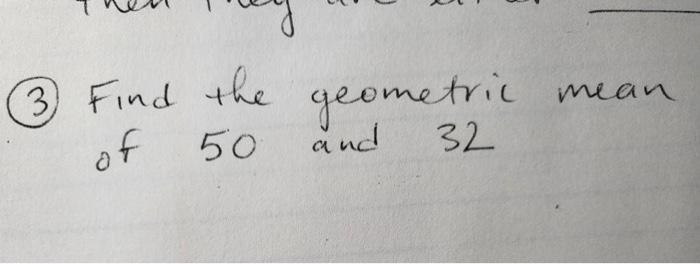 ③ Find the geometric mean
of 50 and 32